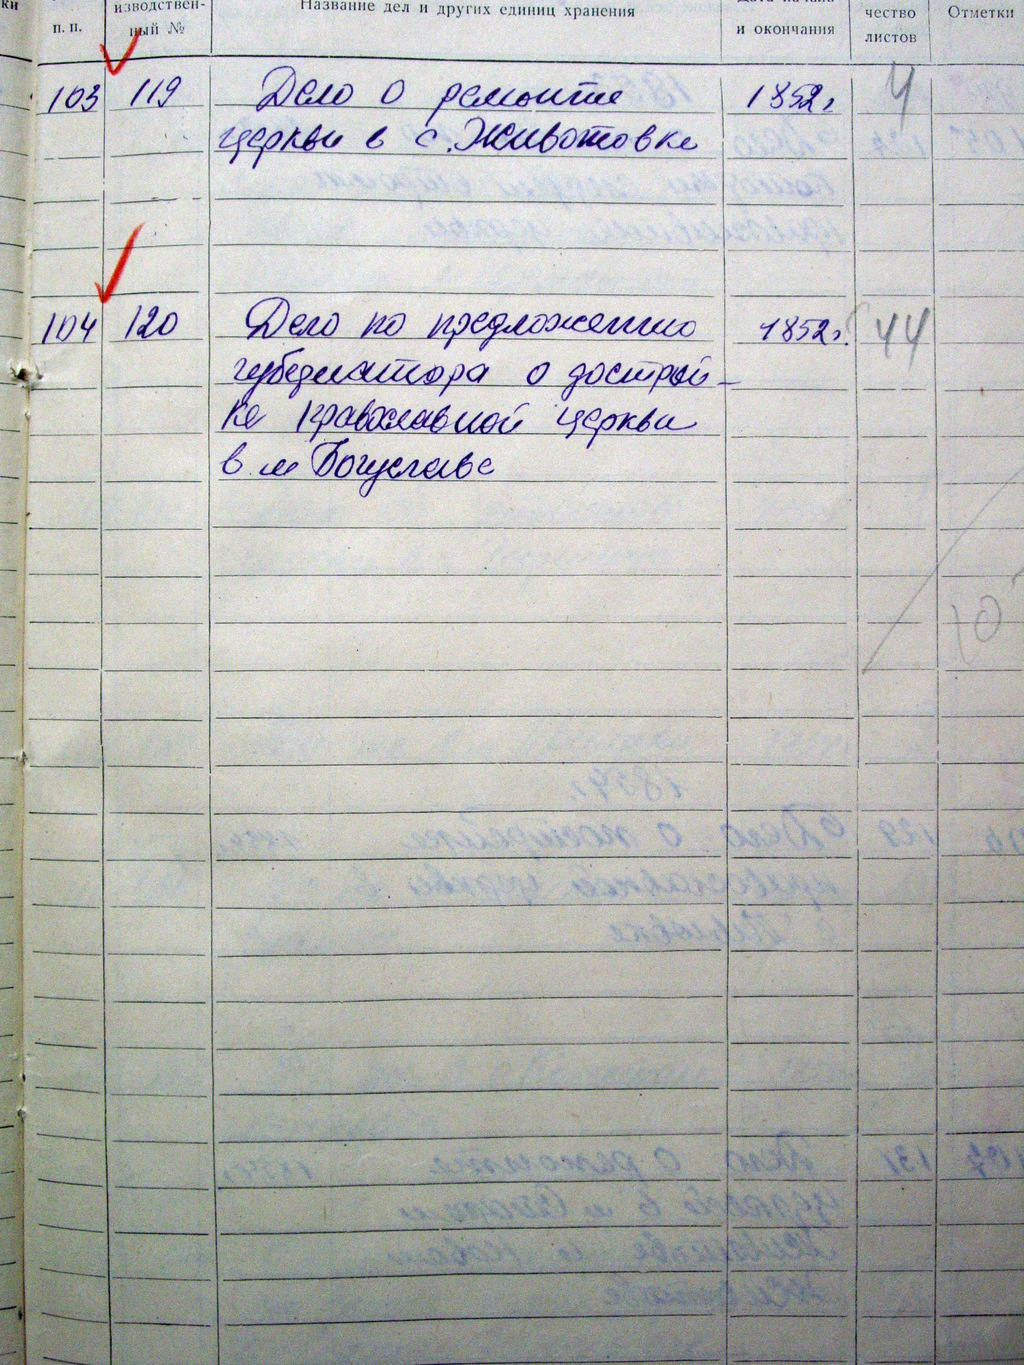 ки
п. п.
изводствен-
ный №
Название дел и других единиц хранения
и окончания
чество
листов
Отметки
103 119 Дело о ремонте 1852г 4
церкви в с. Животовке
104 120 Дело по предложению 1852г. 44
губернатора о дострой-
ке православной церкви
в м Богуславе